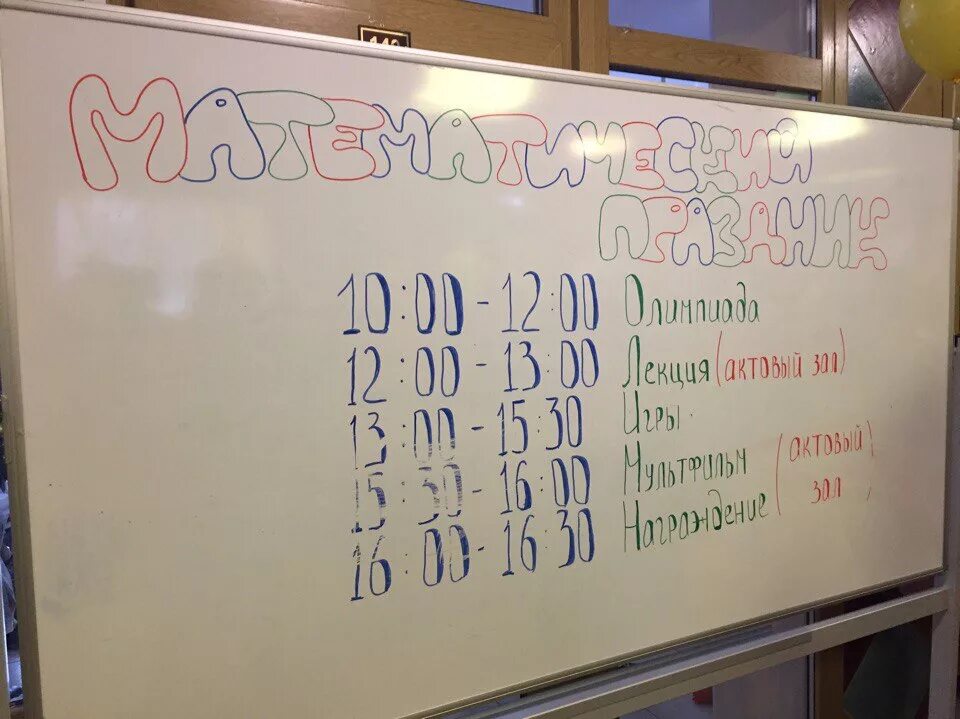 МАТЕМАТИЧЕСКИЙ
ПРАЗДНИК
10:00 - 12:00 Олимпиада
12:00 - 13:00 Лекция (актовый зал)
13:00 - 15:30 Игры
15:30 - 16:00 Мультфильм (актовый
16:00 - 16:30 Награждение зал)